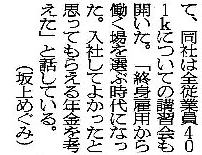 て、同社は全従業員４０
１ｋについての講習会も
開いた。「終身雇用から
働く場を選ぶ時代になっ
た。入社してよかったと
思ってもらえる年金を考
えた」と話している。
（坂上めぐみ）